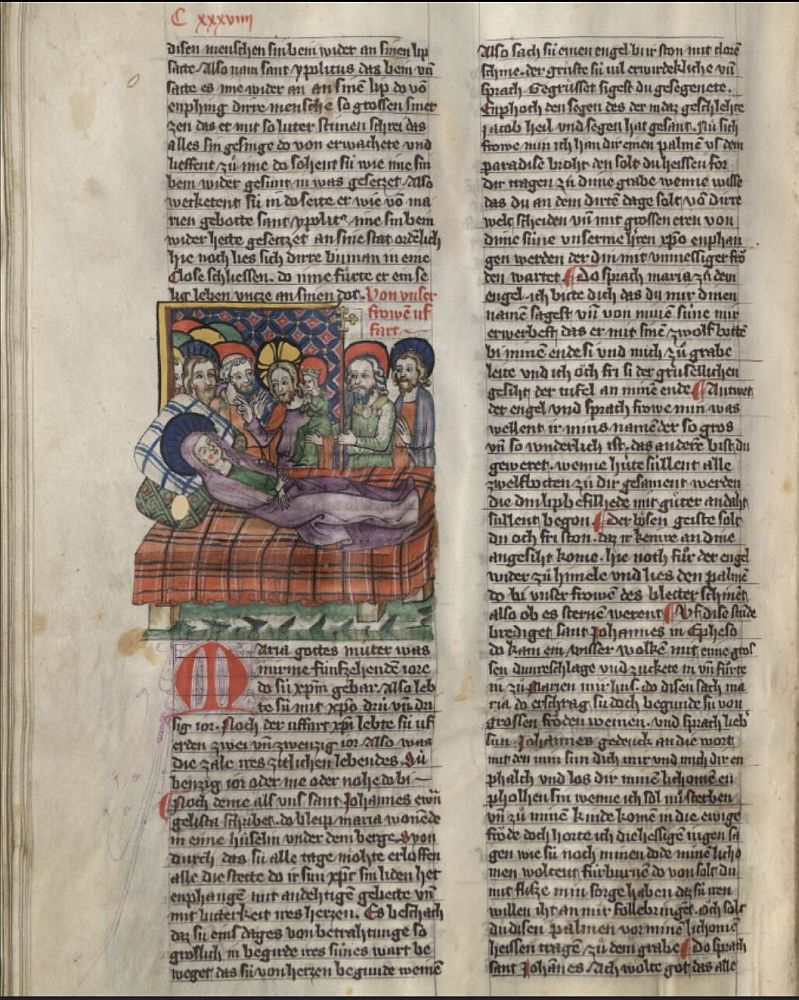 C xxxviiij
disen menschen sin bein wider an sinen lip
satte. Also nam sant ypolitus das bein vñ
satte es ime wider an an sinē lip do vō
enphing dirre mensche so grossen smer
zen das er mit so luter stimen schrei das
alles sin gesinge do von erwachete vnd
lieffent zů ime do sohent sü wie ime sin
bein wider gesunt was gesetzet. Also
verketent sü in do seite er wie vō ma
rien gebotte sant ypplitꝰ ime sin bein
wider hette gesetzet an sine stat ordēlich
hie noch lies sich dirre buman in eine
Close schliessen. do inne fürte er ein se
lig leben vncze an sinen dot. Von vnser
frowen uf
fart
Maria gottes můter was
in irme fünfzehenden iore
do sü xpm̄ gebar. Also leb
te sü mit xpō drü vn̄ dri
sig ior. Noch der uffart xpi lebte sü uf
erden zwei vn̄ zwenzig ior Also was
die zale ires zitlichen lebendes. Sü
benzig ior oder me oder nohe do bi
Noch deme als vns sant Johannes ewā
gelista schribet. do bleip maria wonēde
in eime hüselin vnder dem berge Syon
durch das sü alle tage mohte erloffen
alle die stette do ir sun xpc̄ sin liden het
enphangē mit andehtigē gebette vn̄
mit luterkeit ires herzen. Es beschach
daz sü eins dages von betrahtunge so
groslich in begirde ires sunes wart be
weget das sü von herzen begunde weinē
Also sach sü einen engel bi ir ston mit clorē
schine. der gruste sü vil erwirdekliche vn̄
sprach Gegrüsset sigest du gesegenete.
Enphoch den segen des der in daz geschlehte
iacob heil vnd segen hat gesant. Nü sich
frowe min ich han dir einen palmē vs dem
paradise broht den solt du heissen for
dir tragen zů dime grabe wenne wisse
das du an dem dirtē dage solt vō dirre
welt scheiden vn̄ mit grossen eren von
dime süne vnserme h̄ren xp̄o enphan
gen werden der din mit vnmessiger frö
den wartet. Do sprach maria zů dem
engel. ich bitte dich das du mir dinen
namen sagest vn̄ von mime süne mir
erwerbest das er mit sinē zwolf bottē
bi minē ende si vnd mich zů grabe
leite vnd ich och fri si der grüsellichen
gesiht der tüfel an minē ende. Antwet
der engel vnd sprach frowe min was
wellent ir mins namē der so gros
vn̄ so wnderlich ist. das andere bist du
geweret. wenne hüte süllent alle
zwelfbotten zů dir gesament werden
die din lip befilhede mit gůter andaht
süllent begon. der bösen geiste solt
du och fri ston. daz ir keinre an dine
angesiht kome. hie noch für der engel
wider zů himele vnd lies den palmē
do bi vnser frowen des bletter schinēt
also ob es sternē werent. Uf dise stůde
brediget sant Johannes in Epheso
do kam ein wisser wolken mit eime gros
sen dunreschlage vnd zuckete in vn̄ fürte
in zů Marien in ir hus. do disen sach ma
ria do erschrag sü doch begunde sü von
grossen fröden weinen. vnd sprach lieb'
sun Johannes gedenck an die wort
mit den min sun dich mir vnd mich dir en
phalch vnd los dir minē lichomē en
pholhen sin wenne ich sol nů sterben
vn̄ zů minē kinde komē in die ewige
fröde doch horte ich die hessigē iugen sa
gen wie sü noch minen dode minē licho
men woltent fürburnē do von solt du
mit flisze min sorge haben daz sü iren
willen iht an mir follebringēt. och solt
du disen palmen vor minē lichomē
heissen tragē zů dem grabe. Do sprach
sant Johānes / Ach wolte got das alle